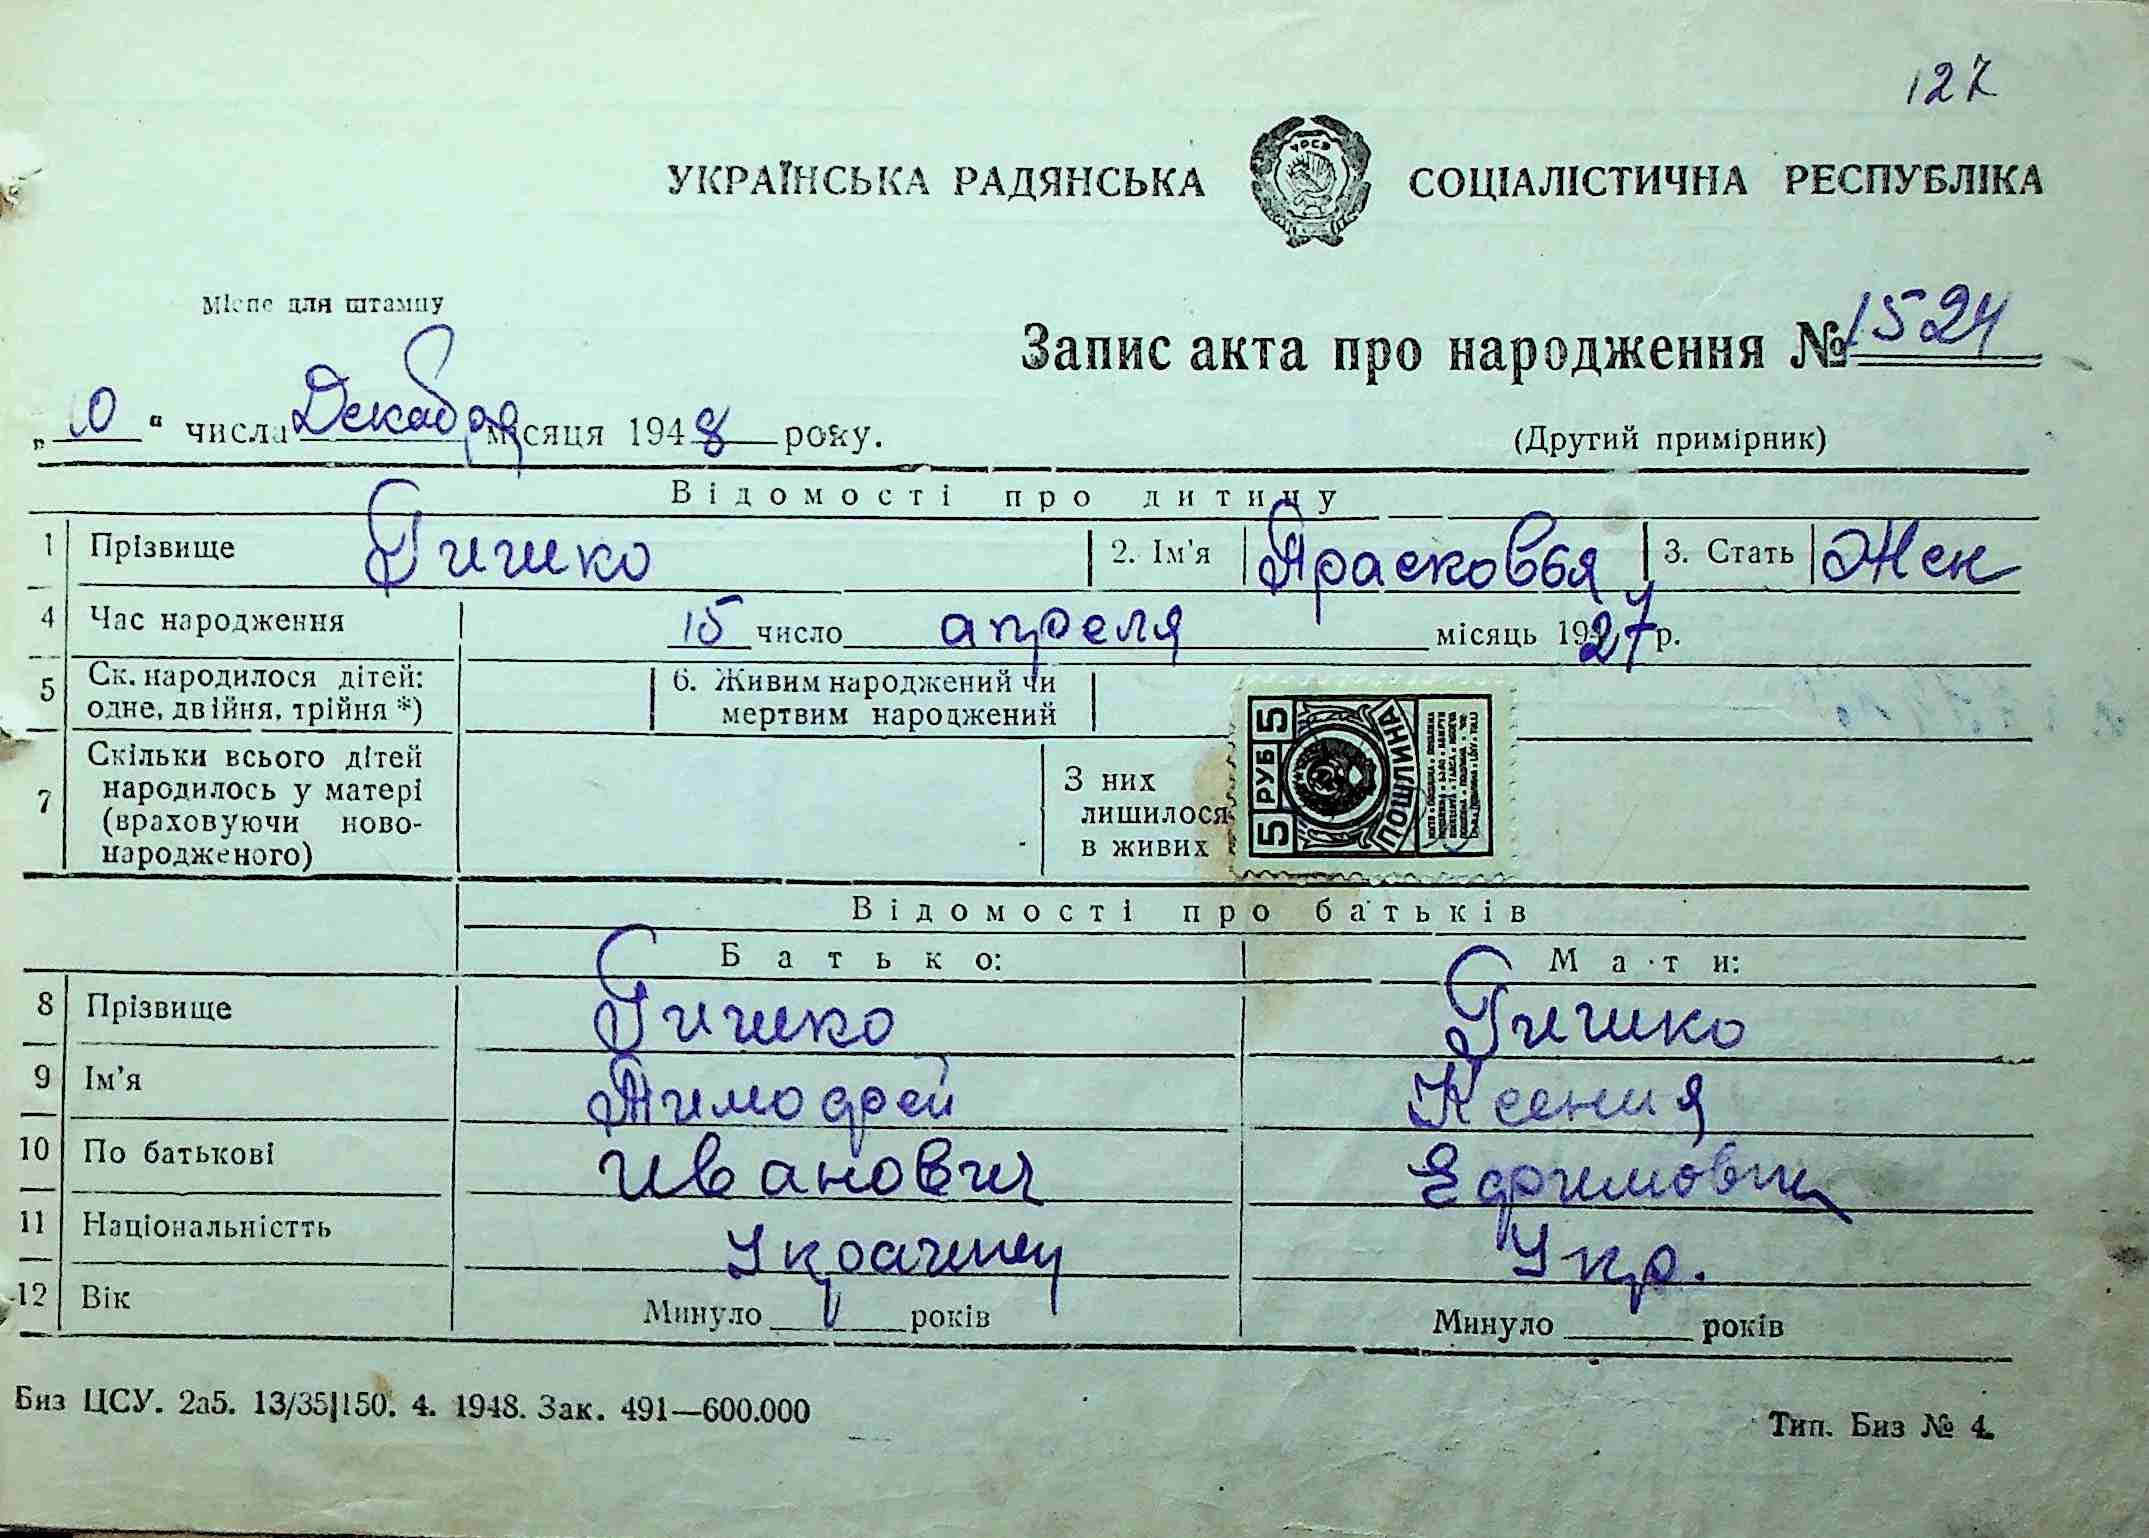 127
УКРАЇНСЬКА РАДЯНСЬКА СОЦІАЛІСТИЧНА РЕСПУБЛІКА
Місце для штампу
Запис акта про народження № 1524
„10“ числа Декабря місяця 1948 року.
(Другий примірник)
Відомості про дитину
1 Прізвище Гишко 2. Ім'я Прасковья 3. Стать Жен
4 Час народження 15 число апреля місяць 1927 р.
5 Ск. народилося дітей: одне, двійня, трійня *) 6. Живим народжений чи мертвим народжений
7 Скільки всього дітей народилось у матері (враховуючи ново-народженого) З них лишилося в живих
5 РУБ 5
ПОШЛИНА
Відомості про батьків
Батько: Мати:
8 Прізвище Гишко Гишко
9 Ім'я Тимофей Ксения
10 По батькові Иванович Ефимовна
11 Національністть Украинец Укр.
12 Вік Минуло ____ років Минуло ____ років
Биз ЦСУ. 2а5. 13/35|150. 4. 1948. Зак. 491—600.000
Тип. Биз № 4.